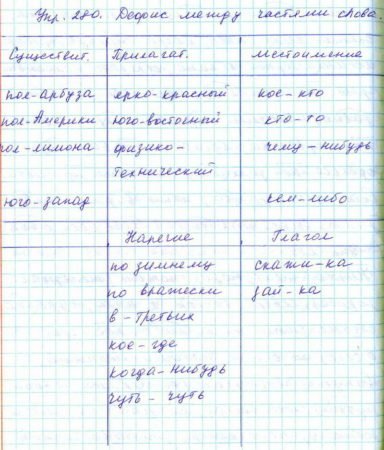 Упр. 280. Дефис между частями слова.
Существит. Прилагат. местоимение
пол-арбуза ярко-красный кое-кто
пол-Америки юго-восточный кто-то
пол-лимона физико- чему-нибудь
технический
юго-запад кем-либо
Наречие Глагол
по зимнему скажи-ка
по вражески дай-ка
в-третьих
кое-где
когда-нибудь
чуть-чуть